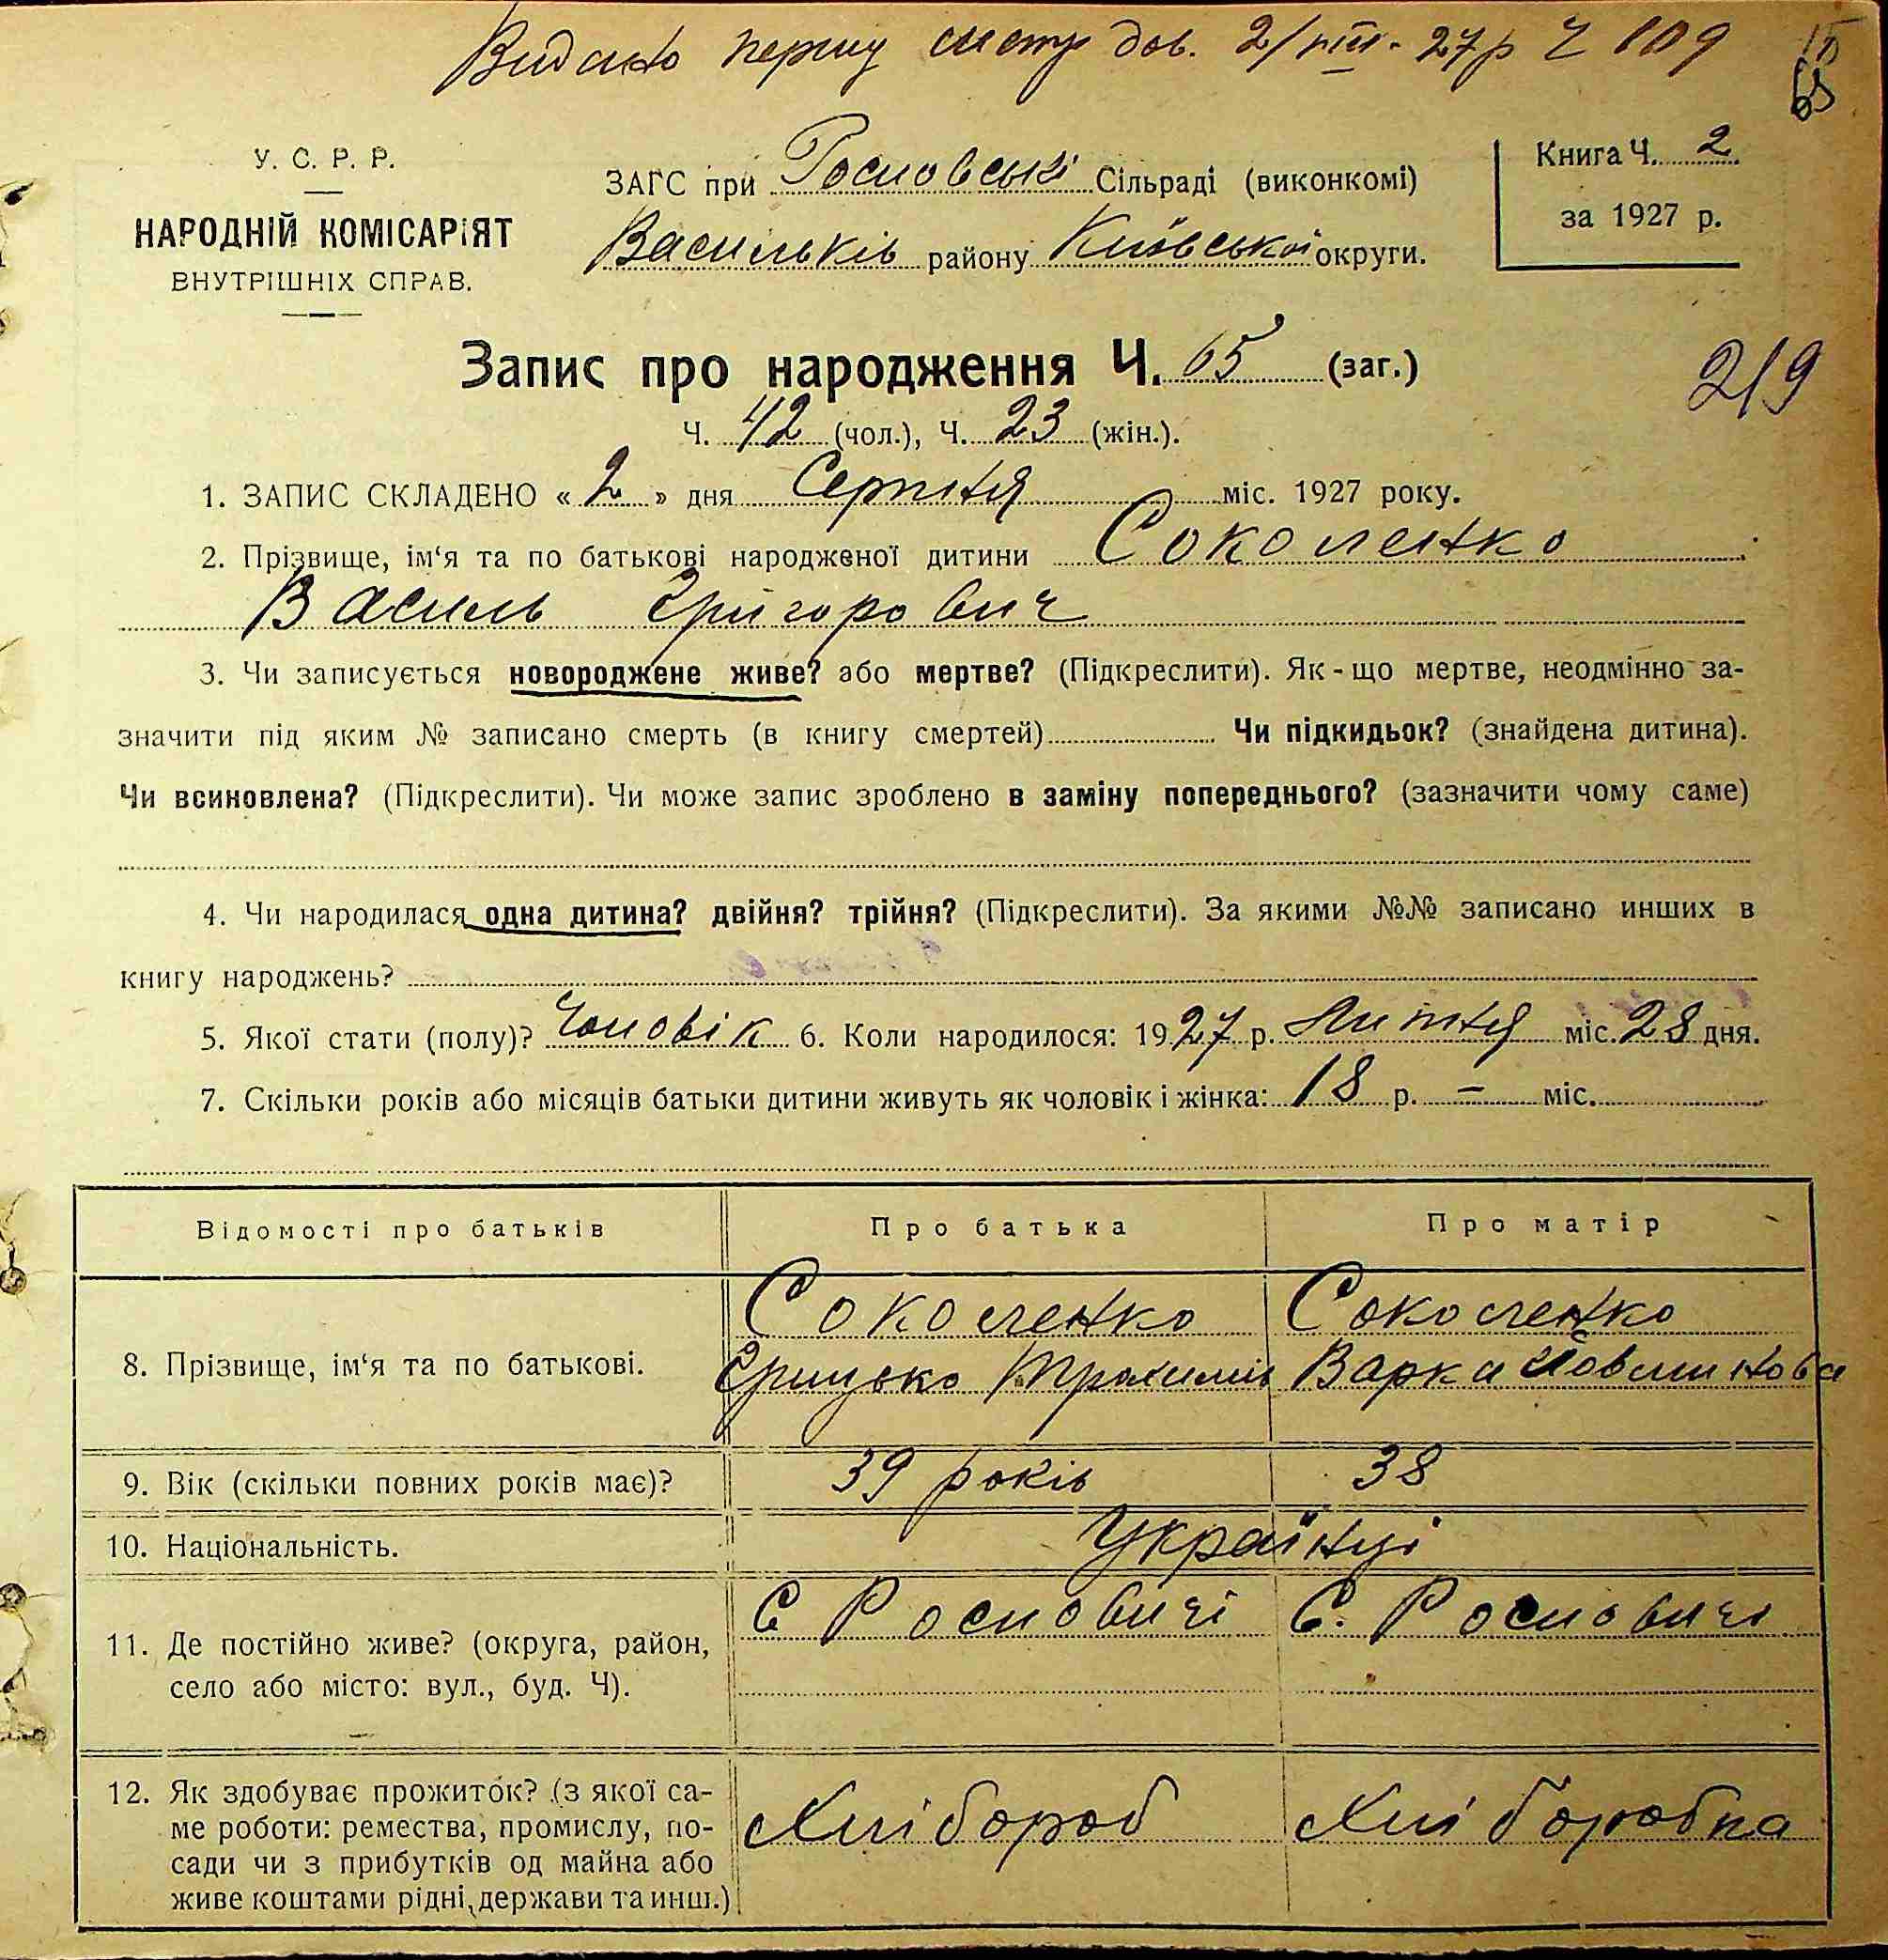 Видано перву систу дов. 2/VIII-27р Ч 109
65
У. С. Р. Р.
НАРОДНІЙ КОМІСАРІЯТ
ВНУТРІШНІХ СПРАВ.
ЗАГС при Рословські Сільраді (виконкомі)
Васильків району Київської округи.
Книга Ч. 2.
за 1927 р.
Запис про народження Ч. 65 (заг.)
219
Ч. 42 (чол.), Ч. 23 (жін.).
1. ЗАПИС СКЛАДЕНО « 2 » дня Серпня міс. 1927 року.
2. Прізвище, ім‘я та по батькові народженої дитини Соколенко
Василь Григорович
3. Чи записується новороджене живе? або мертве? (Підкреслити). Як-що мертве, неодмінно за-
значити під яким № записано смерть (в книгу смертей) Чи підкидьок? (знайдена дитина).
Чи всиновлена? (Підкреслити). Чи може запис зроблено в заміну попереднього? (зазначити чому саме)
4. Чи народилася одна дитина? двійня? трійня? (Підкреслити). За якими №№ записано инших в
книгу народжень?
5. Якої стати (полу)? Чоловік 6. Коли народилося: 1927 р. Липня міс. 28 дня.
7. Скільки років або місяців батьки дитини живуть як чоловік і жінка: 18 р. – міс.
Відомості про батьків Про батька Про матір
Соколенко Соколенко
8. Прізвище, ім‘я та по батькові. Грицько Трохимів Варка
9. Вік (скільки повних років має)? 39 років 38
10. Національність. Українці
С Рословичі С. Рословичі
11. Де постійно живе? (округа, район,
село або місто: вул., буд. Ч).
12. Як здобуває прожиток? (з якої са-
ме роботи: ремества, промислу, по- Хлібороб Хлiборобка
сади чи з прибутків од майна або
живе коштами рідні, держави та инш.)